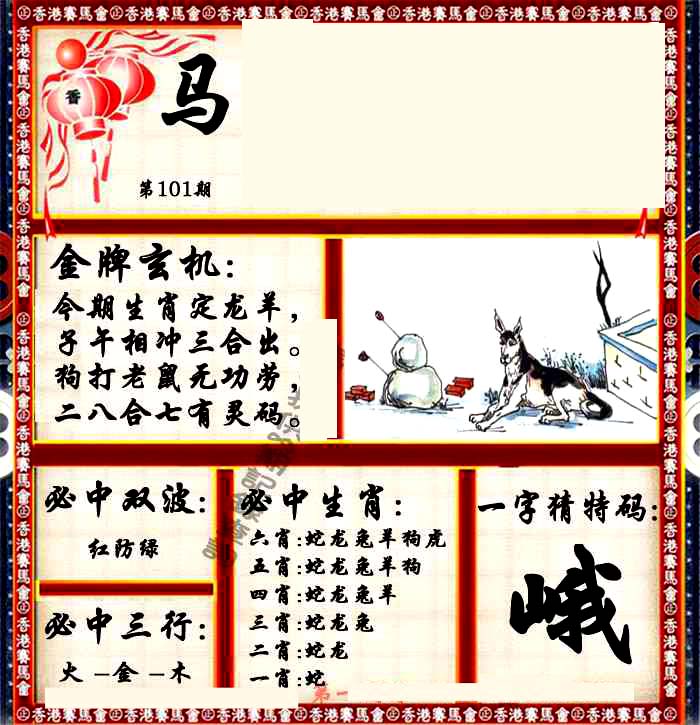 ㊣香港賽馬會㊣香港賽馬會㊣香港賽馬會㊣香港賽馬會㊣香港賽馬會㊣香港賽馬會㊣香港賽馬會
香
马
第101期
金牌玄机:
今期生肖定龙羊,
子午相冲三合出。
狗打老鼠无功劳,
二八合七有灵码。
必中双波:
红防绿
必中三行:
火-金-木
必中生肖:
六肖:蛇龙兔羊狗虎
五肖:蛇龙兔羊狗
四肖:蛇龙兔羊
三肖:蛇龙兔
二肖:蛇龙
一肖:蛇
第一
一字猜特码:
峨
㊣香港賽馬會㊣香港賽馬會㊣香港賽馬會㊣香港賽馬會㊣香港賽馬會㊣香港賽馬會㊣香港賽馬會